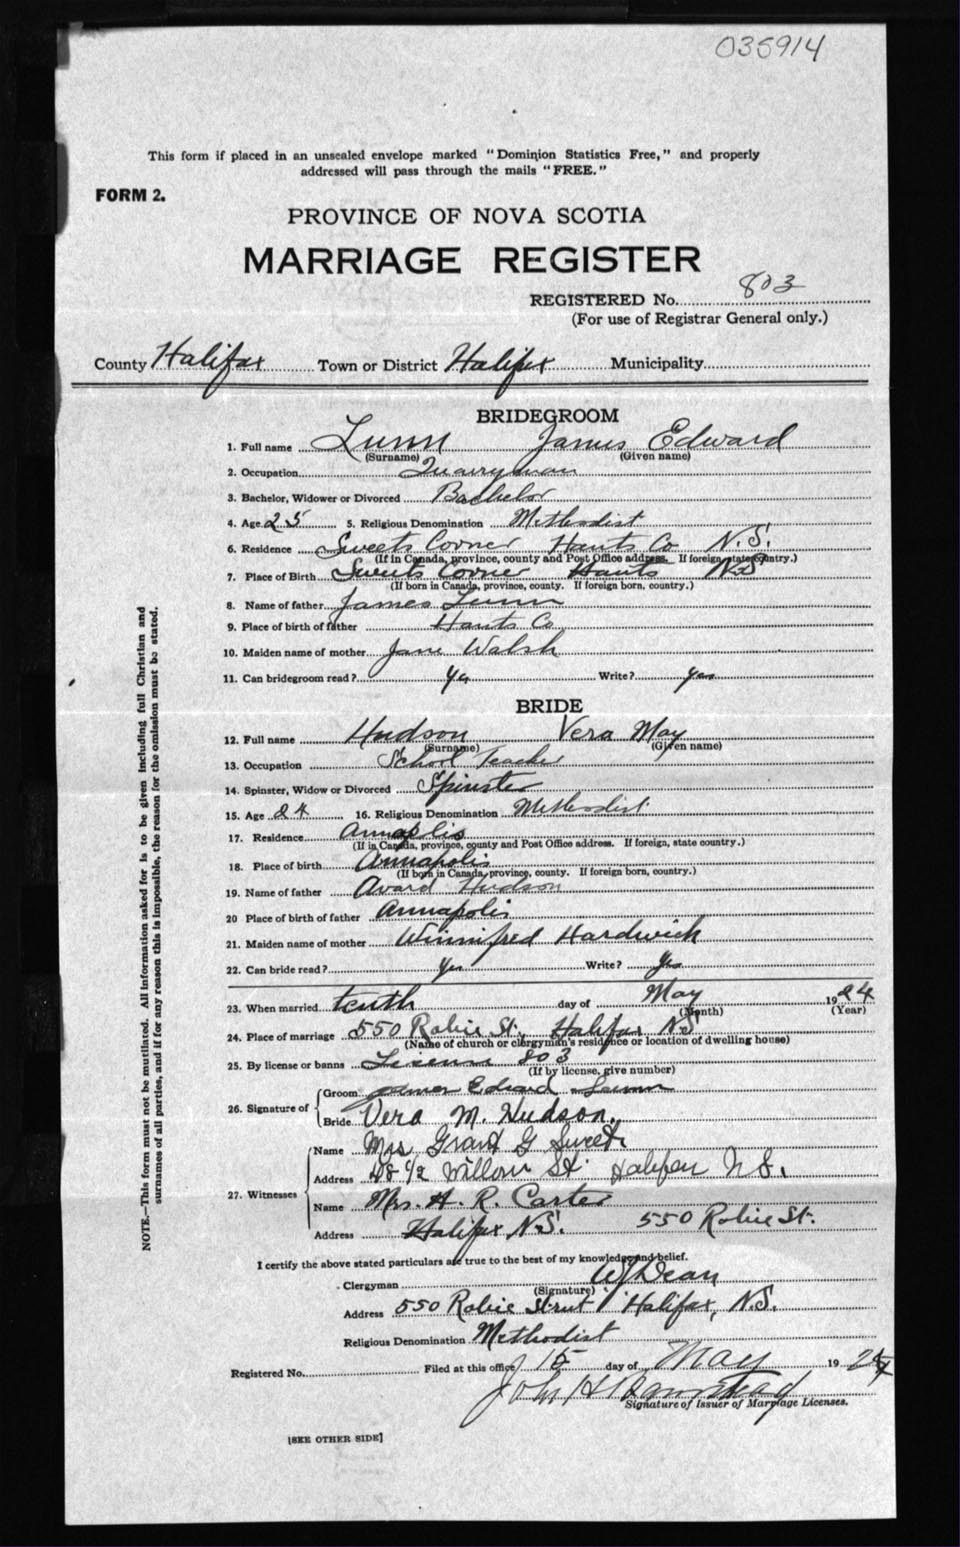 035914
This form if placed in an unsealed envelope marked "Dominion Statistics Free," and properly
addressed will pass through the mails "FREE."
FORM 2.
PROVINCE OF NOVA SCOTIA
MARRIAGE REGISTER
REGISTERED No. 803
(For use of Registrar General only.)
County Halifax Town or District Halifax Municipality
BRIDEGROOM
1. Full name Lunn James Edward
(Surname) (Given name)
2. Occupation Quarryman
3. Bachelor, Widower or Divorced Bachelor
4. Age 25 5. Religious Denomination Methodist
6. Residence Sweets Corner Hants Co N.S.
(If in Canada, province, county and Post Office address. If foreign, state country.)
7. Place of Birth Sweets Corner Hants N.S
(If born in Canada, province, county. If foreign born, country.)
8. Name of father James Lunn
9. Place of birth of father Hants Co
10. Maiden name of mother Jane Walsh
11. Can bridegroom read? Yes Write? Yes
BRIDE
12. Full name Hudson Vera May
(Surname) (Given name)
13. Occupation School Teacher
14. Spinster, Widow or Divorced Spinster
15. Age 24 16. Religious Denomination Methodist
17. Residence Annapolis
(If in Canada, province, county and Post Office address. If foreign, state country.)
18. Place of birth Annapolis
(If born in Canada, province, county. If foreign born, country.)
19. Name of father Avard Hudson
20 Place of birth of father Annapolis
21. Maiden name of mother Winnifred Hardwick
22. Can bride read? Yes Write? Yes
23. When married tenth day of May 1924
(Month) (Year)
24. Place of marriage 550 Robie St. Halifax N.S
(Name of church or clergyman's residence or location of dwelling house)
25. By license or banns License 803
(If by license, give number)
26. Signature of
Groom James Edward Lunn
Bride Vera M. Hudson.
27. Witnesses
Name Mrs Grant G Sweet
Address 48 1/2 Willow St. Halifax N.S.
Name Mrs. H. R. Carter
Address Halifax N.S. 550 Robie St.
I certify the above stated particulars are true to the best of my knowledge and belief.
Clergyman WJ Dean
(Signature)
Address 550 Robie Street Halifax, N.S.
Religious Denomination Methodist
Registered No. Filed at this office 15 day of May 1924
John H
Signature of Issuer of Marriage Licenses.
[SEE OTHER SIDE]
NOTE.—This form must not be mutilated. All information asked for is to be given including full Christian and
surnames of all parties, and if for any reason this is impossible, the reason for the omission must be stated.